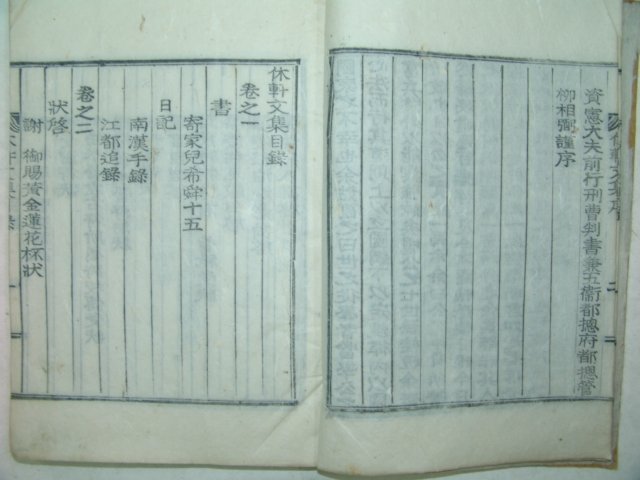 資憲大夫前行刑曹判書兼五衞都摠府都摠管
柳相弼謹序
休軒文集目錄
卷之一
書
寄家兒希舜十五
日記
南漢手錄
江都追錄
卷之二
狀啓
謝 御賜黃金蓮花杯狀